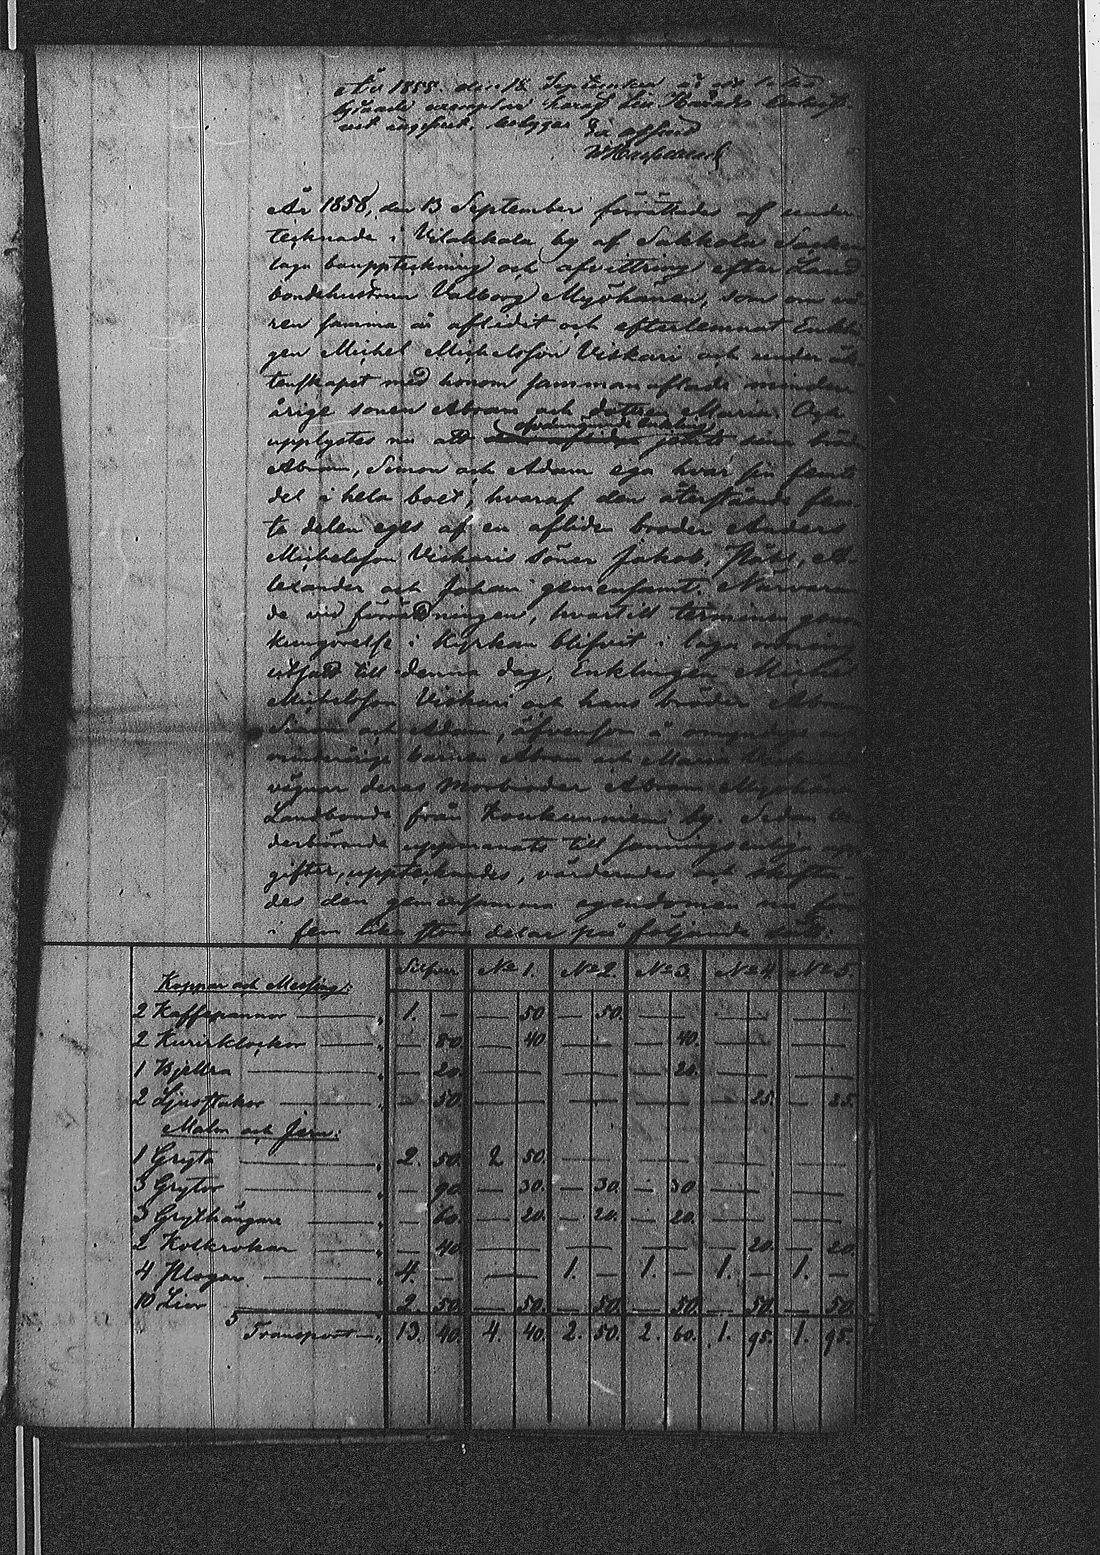 År 1858. den 15 September
exemplar Härads
År 1858, den 13 September förrättades af under
tecknade i Vilakkala by af Sakkola Socken
laga bouppteckning och afvittring efter Land
bondehustrun Valborg Myöhänen, som om vå
ren samma år aflidit och efterlemnat Enklin
gen Michel Michelsson Viskari och under äk
tenskapet med honom sammanaflade minder
årige sonen Abram och dottren Maria. Och
upplystes nu att jemte sine bröder
Abram, Simon och Adam ega hvar sin femte
del i hela boet, hvaraf den återstående fem
te delen eges af en afliden broder Anders
Michelsson Viskaris söner Jakob, Mats, A
lexander och Johan gemensamt. Närvaran
de vid förrättningen, hvartill terminen genom
kungörelse i Kyrkan blifvit i laga ordning
utsatt till denna dag, Enklingen Michel
Michelsson Viskari och hans bröder Abram
Simon och Adam, äfvensom å omyndige och
minderårige barnen Abram och Maria
vägnar deras Morbroder Abram Myöhänen
Landbonde från Koukunniemi by. Sedan
vederbörande uppmanats till sanningsenliga upp
gifter, upptecknades, värderades och skifta
des den gemensamma egendomen nu
i fem lika stora delar på följande sätt:
Silfver No 1. No 2. No 3. No 4. No 5.
Koppar och Messing:
2 Kaffepannor — " 1. — — 50. — 50. — — —
2 — " — 80. — 40. — — 40. — —
1 Bjellra — " — 20. — — — 20. — —
2 Ljusstakar — " — 50. — — — — 25. — 25.
Malm och Jern:
1 Gryta — " 2. 50. 2 50. — — — —
3 Grytor — " — 90. — 30. — 30. — 30. — —
3 Grythängare — " — 60. — 20. — 20. — 20. — —
2 Kolkrokar — " — 40. — — — — 20. — 20.
4 Plogar — " 4. — — 1. — 1. — 1. — 1. —
10 Liar — 2. 50. — 50. — 50. — 50. — 50. — 50.
Transport — " 13. 40. 4. 40. 2. 50. 2. 60. 1. 95. 1. 95.